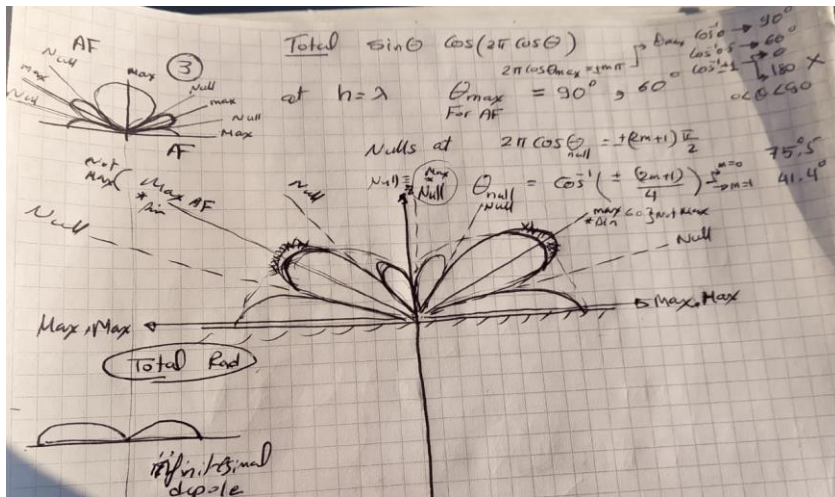 AF
Null
max
Null
Max
Null
max
Null
Max
AF
③
Total sinθ cos(2π cosθ)
2π cosθmax = ±mπ
θmax cos⁻¹0 → 90°
cos⁻¹0.5 → 60°
cos⁻¹±1 → 0
→ 180 X
0<θ<90
at h=λ θmax = 90°, 60°
For AF
Nulls at 2π cosθnull = ±(2m+1) π/2
θnull = cos⁻¹(± (2m+1)/4) → m=0 75.5°
→ m=1 41.4°
Not Max
Max AF
* sin
Null
Null
Max
*
Null
Null
max
* sin Not Max
Null
Null
Max, Max
Max, Max
Total Rad
infinitesimal
dipole